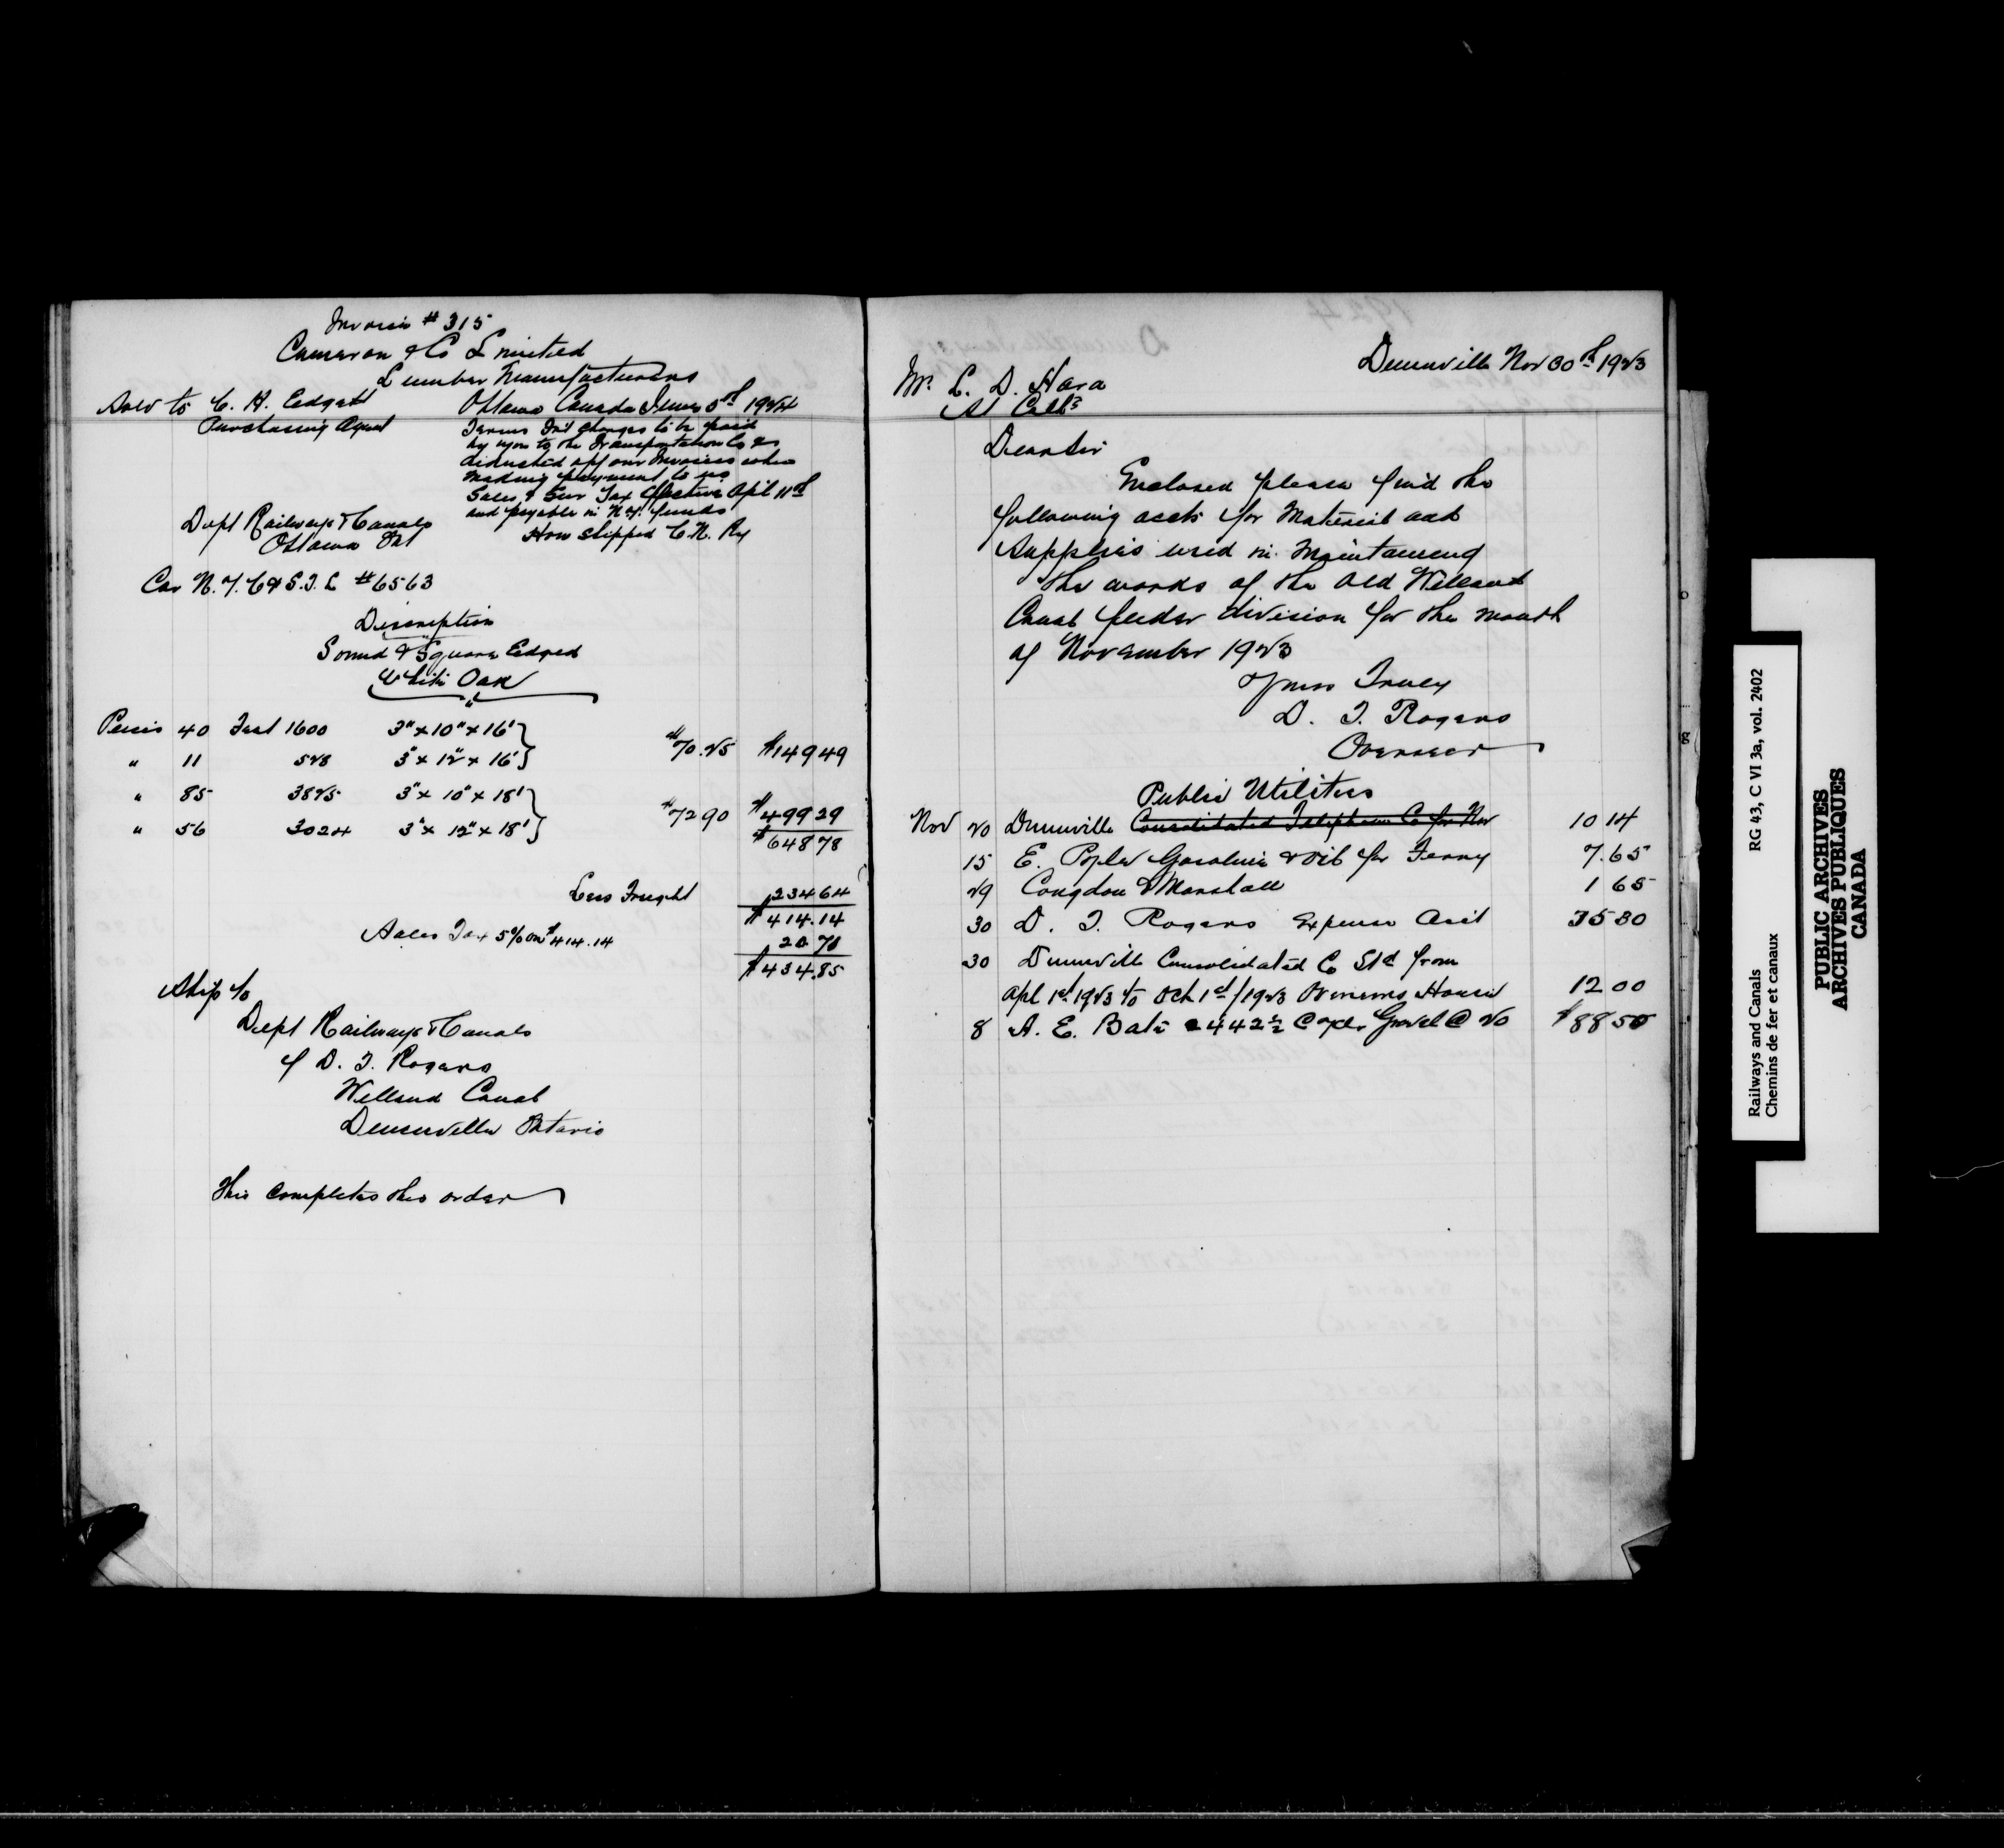 Invoice # 315
Cameron & Co Limited
Lumber Manufacturers
Sold to C. H. Edgett
Ottawa Canada June 5th 1924
Purchasing Agent
Terms Frt charges to be paid
by you to the Transportation Co &
deducted off our Invoices when
making payment to us
Sales & Tax Effective Apl 11th
and payable in N.Y. funds
Dept Railways & Canals
Ottawa Ont
How shipped C. N. Ry
Car N. Y. C & S. T. L #6563
Discription
Sound & Square Edged
White Oak
Peices 40 Feet 1600 3" x 10" x 16' }
" 11 528 3" x 12" x 16' } $70.25 $149 49
" 85 3825 3" x 10" x 18' }
" 56 3024 3" x 12" x 18' } $72 90 $499 29
$648 78
Less Freight 234 64
$414.14
Sales Tax 5% on $414.14 20 71
$434.85
Ship to
Dept Railways & Canals
D. T. Rogers
Welland Canal
Dunnville Ontario
This completes this order
Dunnville Nov 30th 1923
Mr. L. D. Hara
St Caths
Dear Sir
Enclosed please find the
following accts for Material and
Supplies used in Maintaineng
the works of the Old Welland
Canal feeder division for the month
of November 1923
Yours Truly
D. T. Rogers
Overseer
Public Utilities
Nov 20 Dunnville Consolidated Telephone Co for Nov 10 14
15 E. Gasoline & Oil for Ferry 7.65
29 Congdon & Marshall 1 65
30 D. T. Rogers Expense Acct 35 80
30 Dunnville Consolidated Co Ltd from
Apl 1st 1923 to Oct 1st/1923 House 12 00
8 A. E. 442 ½ Gravel @ 20 $88 50
Railways and Canals RG 43, C VI 3a, vol. 2402
Chemins de fer et canaux
PUBLIC ARCHIVES
ARCHIVES PUBLIQUES
CANADA